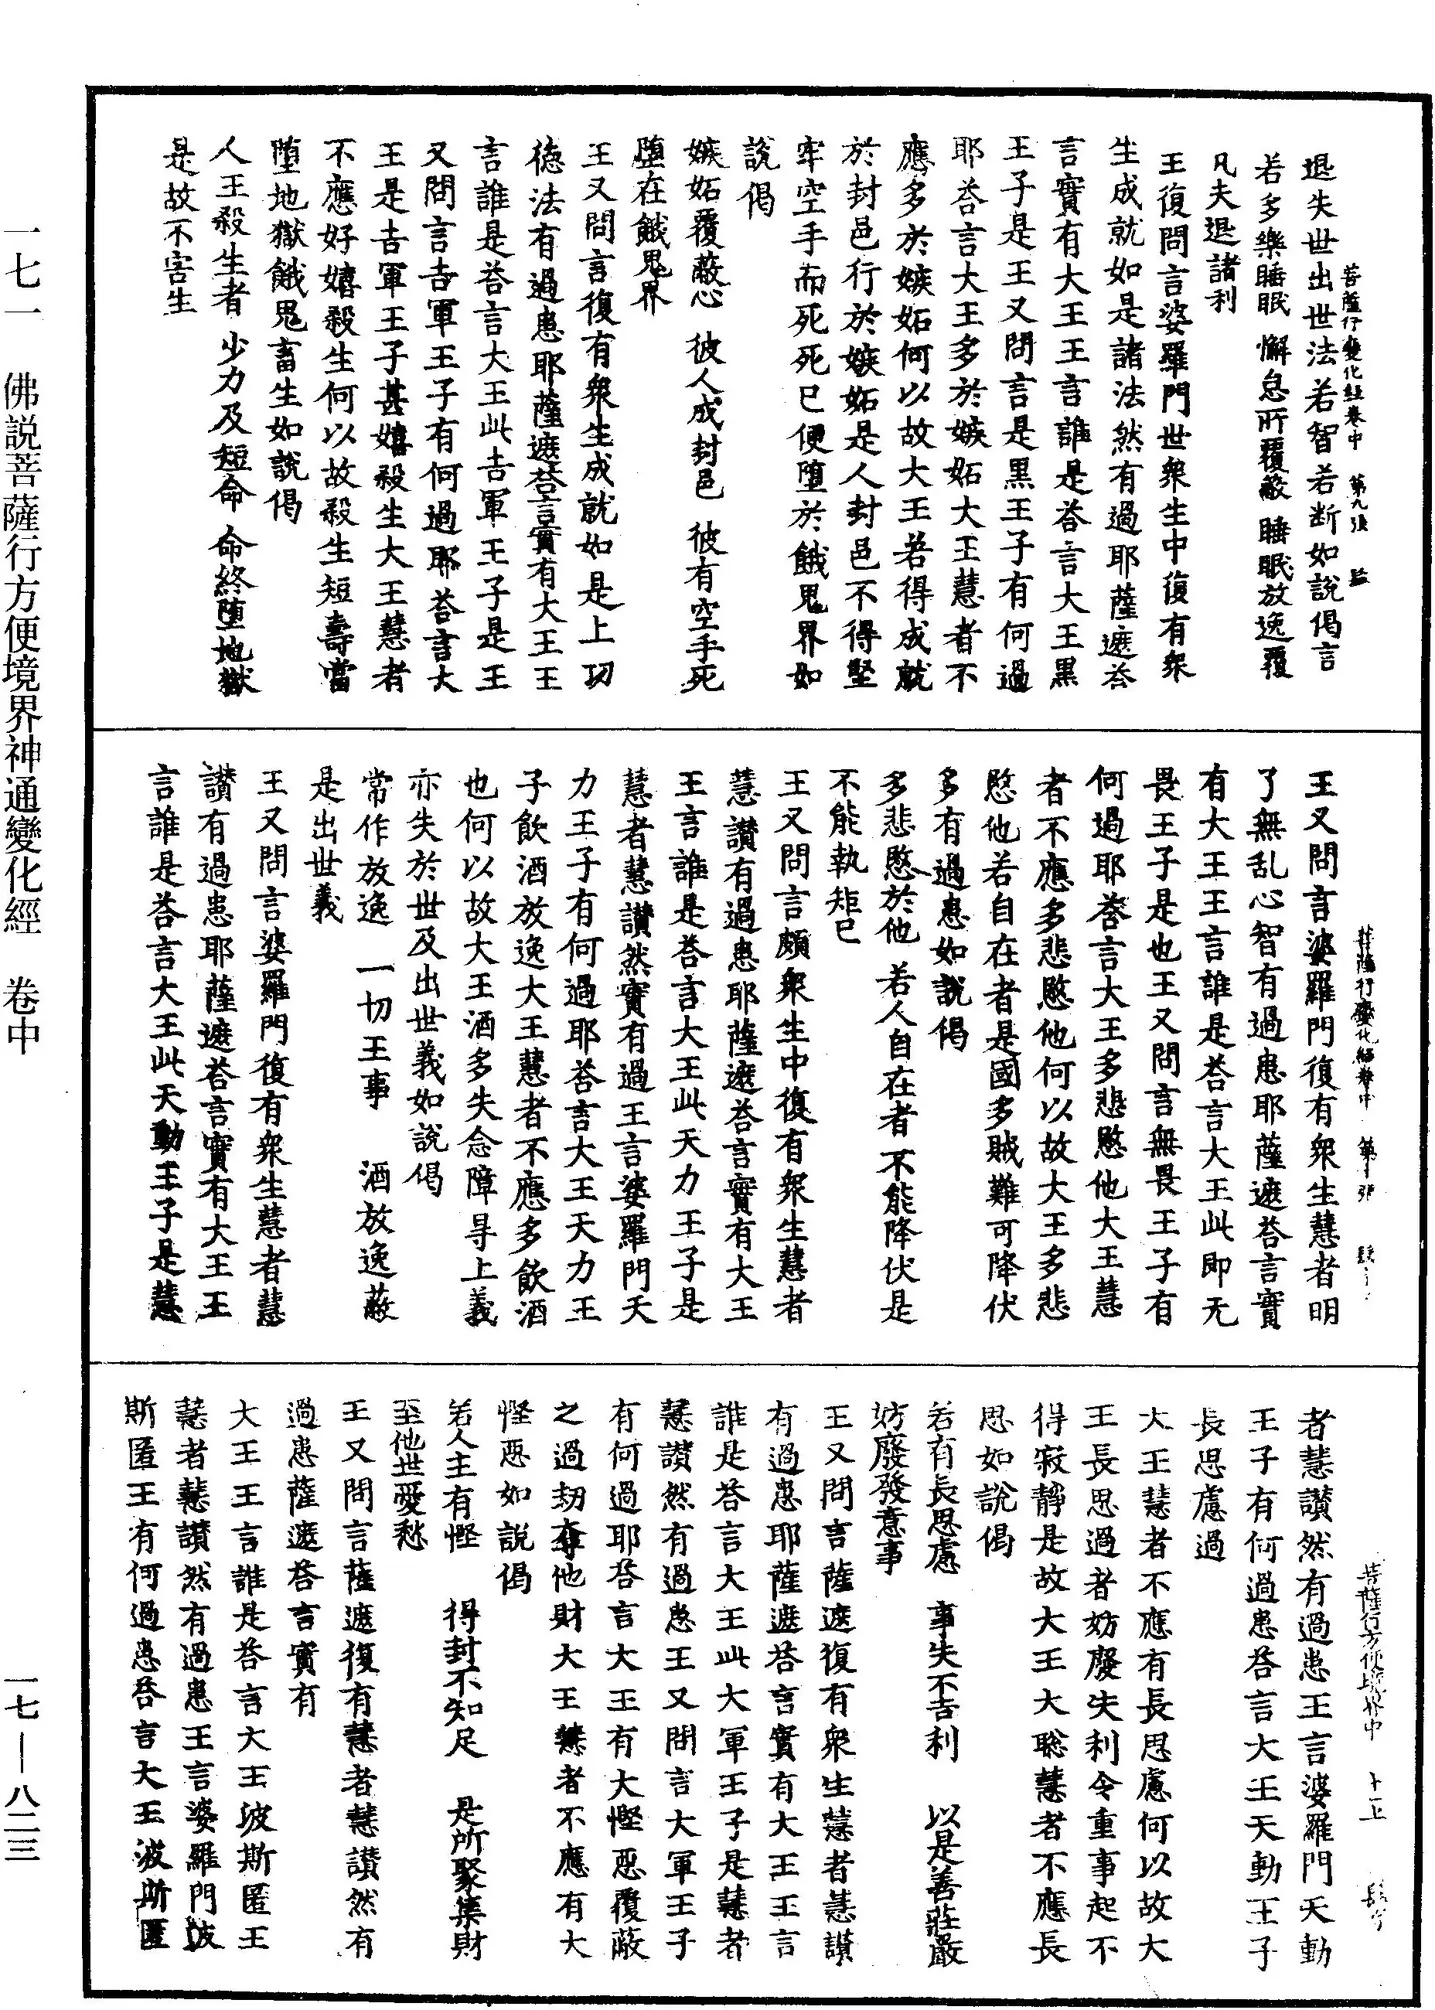 菩薩行變化經卷中　第九張
退失世出世法若智若断如說偈言
若多樂睡眠　懈怠所覆蔽　睡眠放逸覆
凡夫退諸利
王復問言婆羅門世衆生中復有衆
生成就如是諸法然有過耶薩遮荅
言實有大王王言誰是荅言大王黑
王子是王又問言是黑王子有何過
耶荅言大王多於嫉妬大王慧者不
應多於嫉妬何以故大王若得成就
於封邑行於嫉妬是人封邑不得堅
牢空手而死死已便墮於餓鬼界如
說偈
嫉妬覆蔽心　彼人成封邑　彼有空手死
墮在餓鬼界
王又問言復有衆生成就如是上功
德法有過患耶薩遮荅言實有大王王
言誰是荅言大王此吉軍王子是王
又問言吉軍王子有何過耶荅言大
王是吉軍王子甚嬉殺生大王慧者
不應好嬉殺生何以故殺生短壽當
墮地獄餓鬼畜生如說偈
人王殺生者　少力及短命　命終墮地獄
是故不害生
菩薩行變化經卷中　第十張
王又問言婆羅門復有衆生慧者明
了無乱心智有過患耶薩遮荅言實
有大王王言誰是荅言大王此即无
畏王子是也王又問言無畏王子有
何過耶荅言大王多悲愍他大王慧
者不應多悲愍他何以故大王多悲
愍他若自在者是國多賊難可降伏
多有過患如說偈
多悲愍於他　若人自在者　不能降伏是
不能執矩已
王又問言頗衆生中復有衆生慧者
慧讃有過患耶薩遮荅言實有大王
王言誰是荅言大王此天力王子是
慧者慧讃然實有過王言婆羅門天
力王子有何過耶荅言大王天力王
子飲酒放逸大王慧者不應多飲酒
也何以故大王酒多失念障㝵上義
亦失於世及出世義如說偈
常作放逸　一切王事　酒放逸蔽
是出世義
王又問言婆羅門復有衆生慧者慧
讃有過患耶薩遮荅言實有大王王
言誰是荅言大王此天動王子是慧
菩薩行方便境界中　十一
者慧讃然有過患王言婆羅門天動
王子有何過患荅言大王天動王子
長思慮過
大王慧者不應有長思慮何以故大
王長思過者妨廢失利令重事起不
得寂靜是故大王大聡慧者不應長
思如說偈
若有長思慮　事失不吉利　以是善莊嚴
妨廢發意事
王又問言薩遮復有衆生慧者慧讃
有過患耶薩遮荅言實有大王王言
誰是荅言大王此大軍王子是慧者
慧讃然有過患王又問言大軍王子
有何過耶荅言大王有大慳悪覆蔽
之過劫奪他財大王慧者不應有大
慳悪如說偈
若人主有慳　得封不知足　是所聚集財
至他世憂愁
王又問言薩遮復有慧者慧讃然有
過患薩遮荅言實有
大王王言誰是荅言大王波斯匿王
慧者慧讃然有過患王言婆羅門波
斯匿王有何過患荅言大王波斯匿
一七一　佛説菩薩行方便境界神通變化經　卷中
一七—八二三